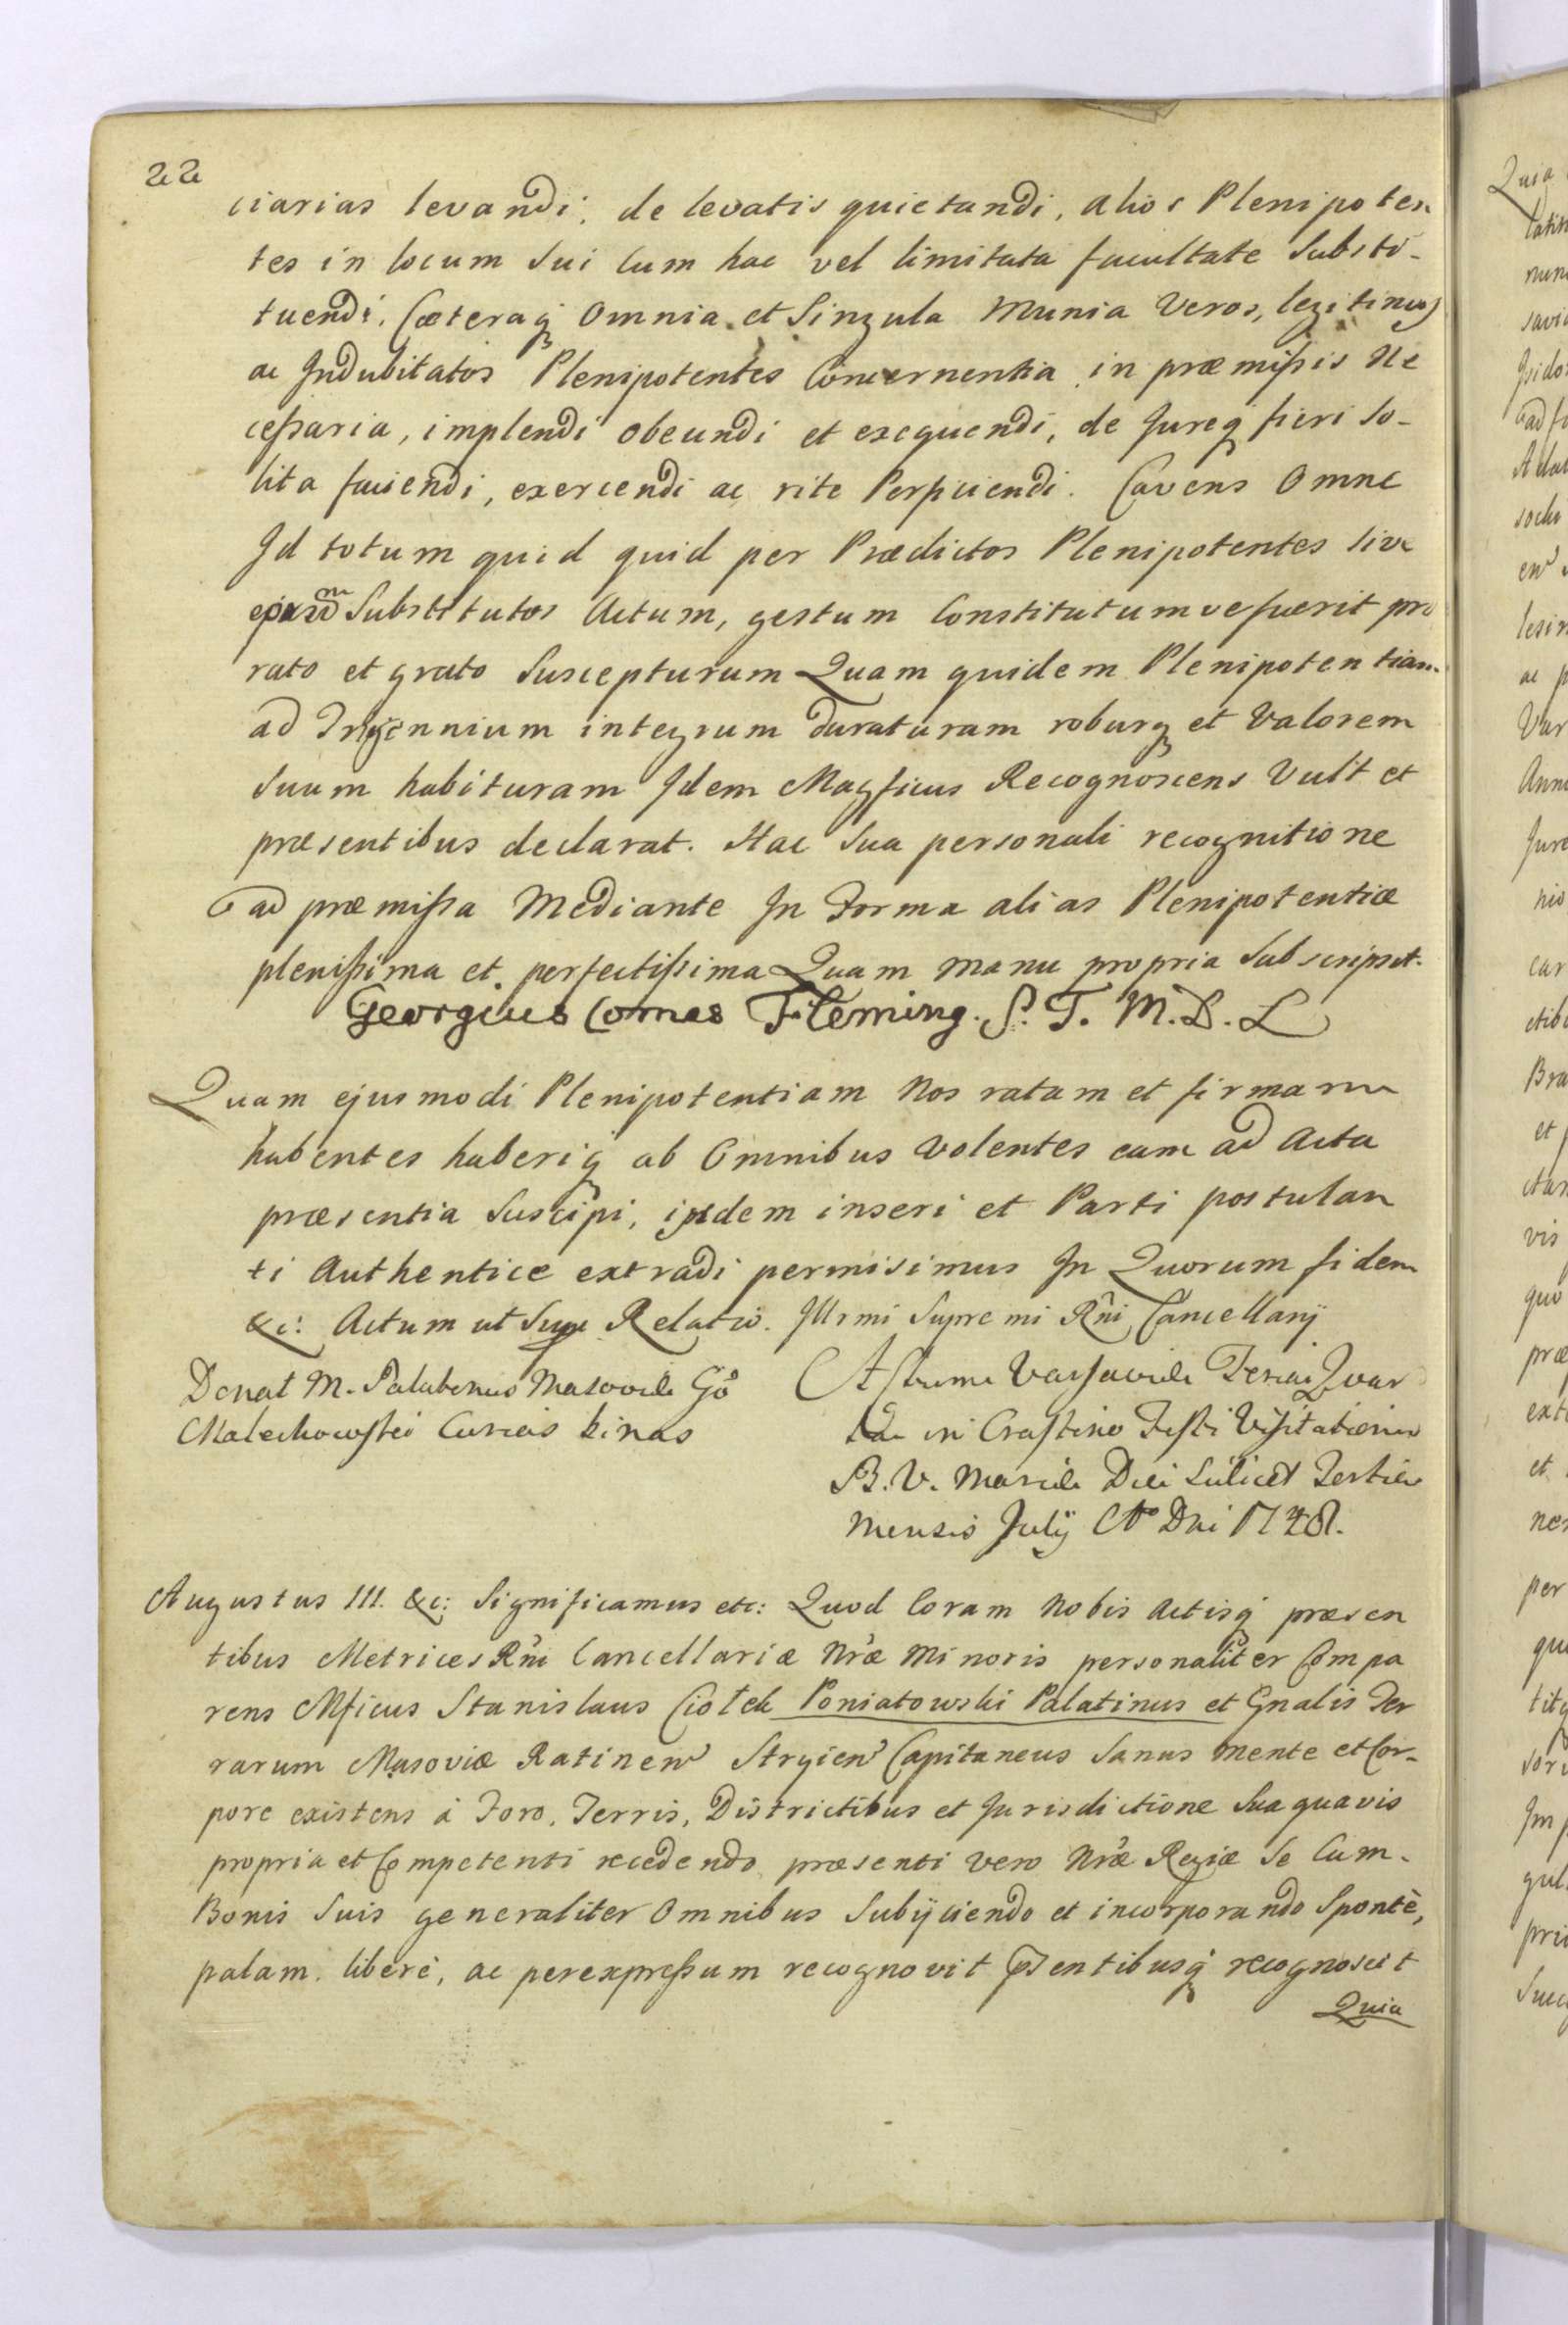 22
ciarias levandi, de levatis quietandi, alios Plenipoten
tes in locum Sui Cum hac vel limitata facultate Substi-
tuendi, Cæteraq Omnia et Singula Munia Veros, legitimos
ac Indubitatos Plenipotentes Concernentia in præmissis Ne
cessaria, implendi obeundi et exequendi, de Jureq fieri So-
lita faciendi, exercendi ac rite Perficiendi. Cavens Omne
Id totum quid quid per Prædictos Plenipotentes Sive
Substitutos Actum, gestum Constitutumve fuerit pro
rato et grato Suscepturum Quam quidem Plenipotentiam
ad integrum duraturam roburq et Valorem
Suum habituram Idem Magficus Recognoscens Vult et
præsentibus declarat. Hac Sua personali recognitione
ad præmissa Mediante In Forma alias Plenipotentiæ
plenissima et perfectissima Quam manu propria Subscripsit.
Georgius Comes Fleming. S. T. M. D. L
Quam ejusmodi Plenipotentiam Nos ratam et firmam
habentes haberiq ab Omnibus Volentes eam ad Acta
præsentia Suscipi, iisdem inseri et Parti postulan
ti Authentice extradi permisimus In Quorum fidem
&c: Actum ut Supra Relatio Illrmi Supremi Rni Cancellarij
Donat M.
Actum Varsaviæ Feria Quar
ta in Crastino Festi Visitationis
B. V. Mariæ Die Scilicet Tertia
Mensis Julij Ao Dni 1748.
Augustus III. &c: Significamus etc: Quod Coram Nobis Actisq præsen
tibus Metrices Rni Cancellariæ Nræ Minoris personaliter Compa
rens Mficus Stanislaus Ciołek Poniatowski Palatinus et Gnalis Ter
rarum Masoviæ Ratinen Stryien Capitaneus Sanus mente et Cor-
pore existens à Foro, Terris, Districtibus et Jurisdictione Sua quavis
propria et Competenti recedendo præsenti vero Nræ Regiæ Se Cum
Bonis Suis generaliter Omnibus Subijciendo et incorporando Spontè,
palam, liberè, ac per expressum recognovit recognoscit
Quia